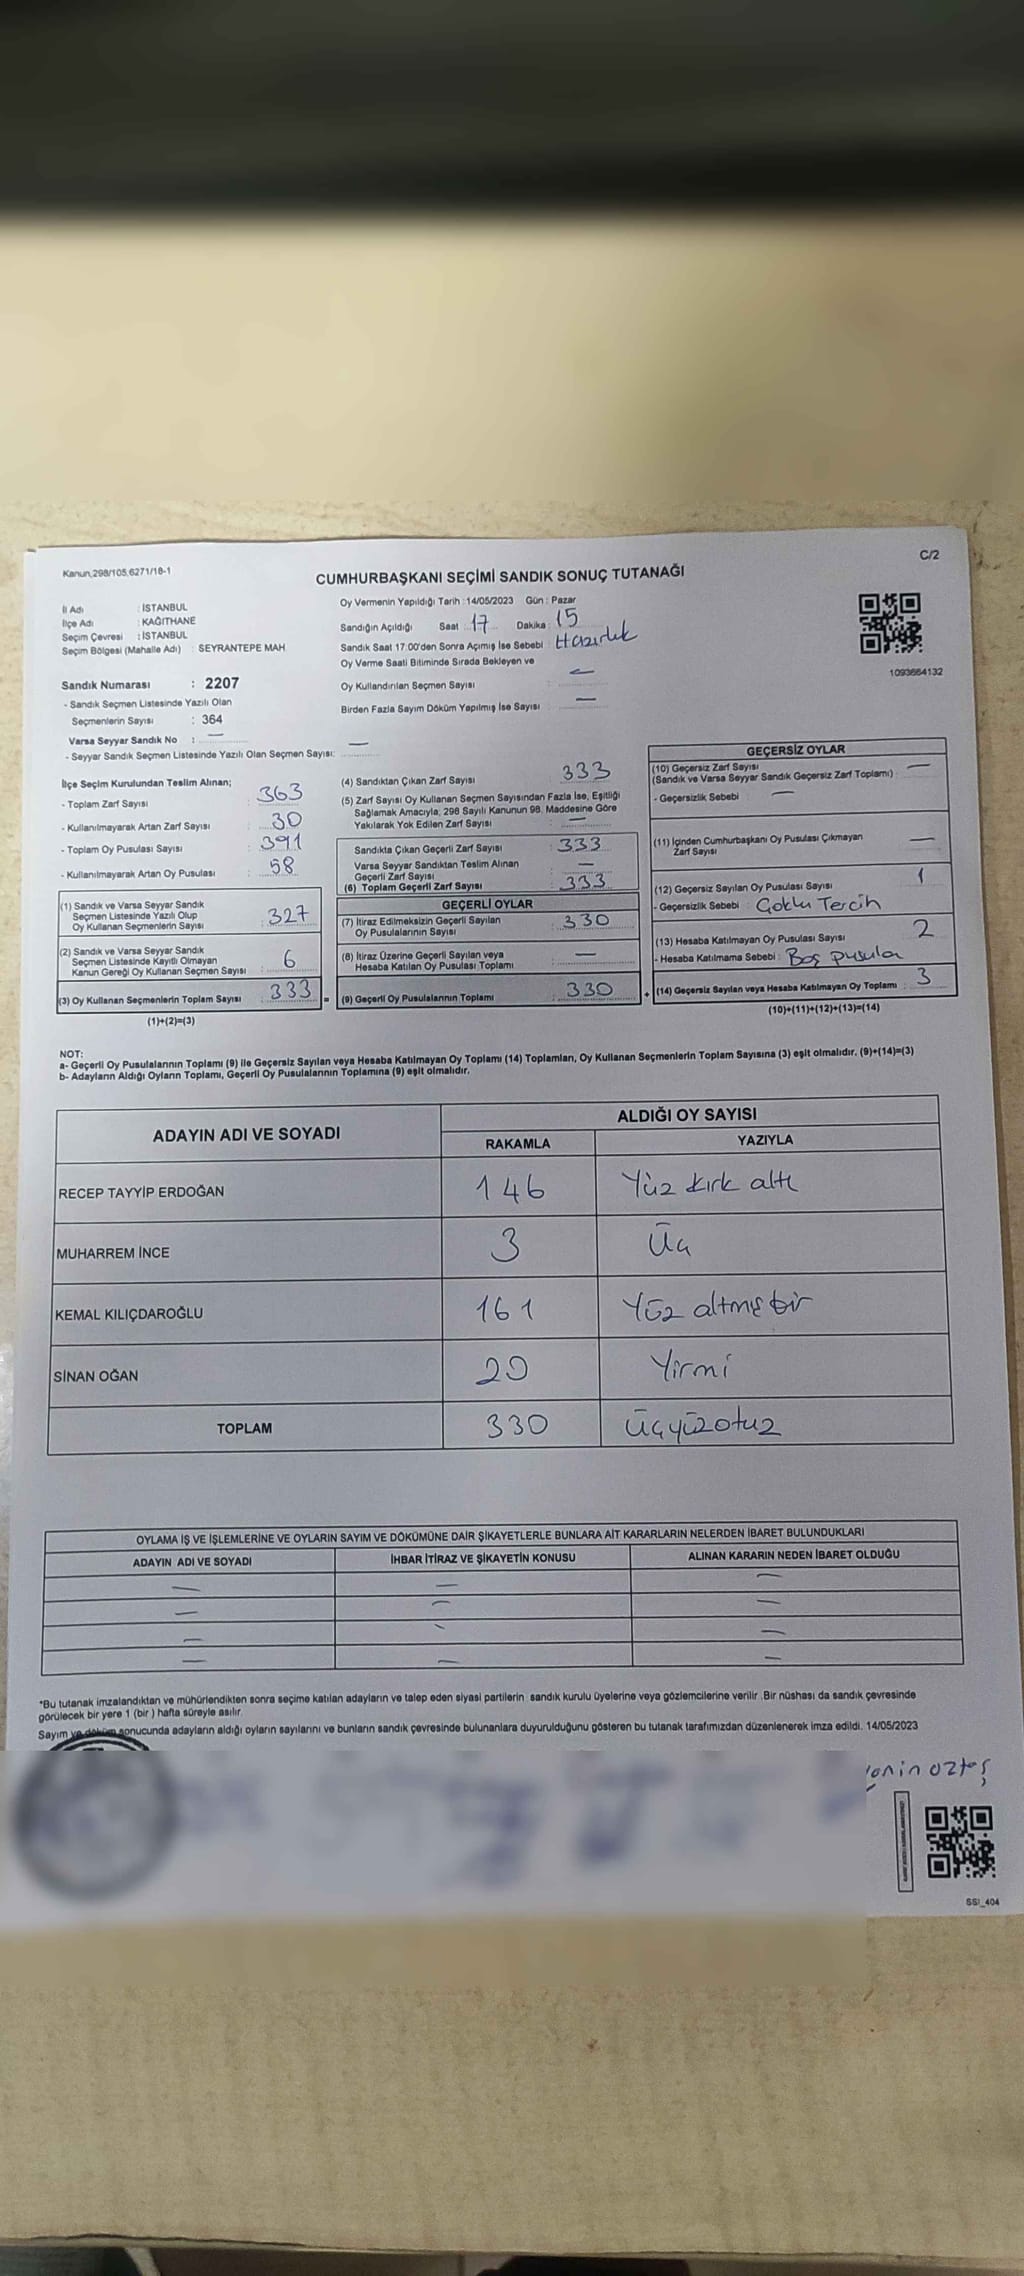 Kanun,298/105,6271/18-1
C/2
CUMHURBAŞKANI SEÇİMİ SANDIK SONUÇ TUTANAĞI
İl Adı : İSTANBUL
İlçe Adı : KAĞITHANE
Seçim Çevresi : İSTANBUL
Seçim Bölgesi (Mahalle Adı) : SEYRANTEPE MAH
Oy Vermenin Yapıldığı Tarih : 14/05/2023 Gün : Pazar
Sandığın Açıldığı Saat : 17 Dakika : 15
Sandık Saat 17:00'den Sonra Açımış İse Sebebi : Hazırlık
Oy Verme Saati Bitiminde Sırada Bekleyen ve
Oy Kullandırılan Seçmen Sayısı : —
Birden Fazla Sayım Döküm Yapılmış İse Sayısı : —
1093664132
Sandık Numarası : 2207
- Sandık Seçmen Listesinde Yazılı Olan
Seçmenlerin Sayısı : 364
Varsa Seyyar Sandık No : —
- Seyyar Sandık Seçmen Listesinde Yazılı Olan Seçmen Sayısı: —
İlçe Seçim Kurulundan Teslim Alınan;
- Toplam Zarf Sayısı : 363
- Kullanılmayarak Artan Zarf Sayısı : 30
- Toplam Oy Pusulası Sayısı : 391
- Kullanılmayarak Artan Oy Pusulası : 58
(1) Sandık ve Varsa Seyyar Sandık
Seçmen Listesinde Yazılı Olup
Oy Kullanan Seçmenlerin Sayısı : 327
(2) Sandık ve Varsa Seyyar Sandık
Seçmen Listesinde Kayıtlı Olmayan
Kanun Gereği Oy Kullanan Seçmen Sayısı : 6
(3) Oy Kullanan Seçmenlerin Toplam Sayısı : 333 =
(1)+(2)=(3)
(4) Sandıktan Çıkan Zarf Sayısı : 333
(5) Zarf Sayısı Oy Kullanan Seçmen Sayısından Fazla İse, Eşitliği
Sağlamak Amacıyla, 298 Sayılı Kanunun 98. Maddesine Göre
Yakılarak Yok Edilen Zarf Sayısı : —
Sandıkta Çıkan Geçerli Zarf Sayısı : 333
Varsa Seyyar Sandıktan Teslim Alınan
Geçerli Zarf Sayısı : —
(6) Toplam Geçerli Zarf Sayısı : 333
GEÇERLİ OYLAR
(7) İtiraz Edilmeksizin Geçerli Sayılan
Oy Pusulalarının Sayısı : 330
(8) İtiraz Üzerine Geçerli Sayılan veya
Hesaba Katılan Oy Pusulası Toplamı : —
(9) Geçerli Oy Pusulalarının Toplamı : 330 +
GEÇERSİZ OYLAR
(10) Geçersiz Zarf Sayısı
(Sandık ve Varsa Seyyar Sandık Geçersiz Zarf Toplamı) : —
- Geçersizlik Sebebi : —
(11) İçinden Cumhurbaşkanı Oy Pusulası Çıkmayan
Zarf Sayısı —
(12) Geçersiz Sayılan Oy Pusulası Sayısı 1
- Geçersizlik Sebebi : Çoklu Tercih
(13) Hesaba Katılmayan Oy Pusulası Sayısı 2
- Hesaba Katılmama Sebebi : Boş pusula
(14) Geçersiz Sayılan veya Hesaba Katılmayan Oy Toplamı : 3
(10)+(11)+(12)+(13)=(14)
NOT:
a- Geçerli Oy Pusulalarının Toplamı (9) ile Geçersiz Sayılan veya Hesaba Katılmayan Oy Toplamı (14) Toplamları, Oy Kullanan Seçmenlerin Toplam Sayısına (3) eşit olmalıdır. (9)+(14)=(3)
b- Adayların Aldığı Oyların Toplamı, Geçerli Oy Pusulalarının Toplamına (9) eşit olmalıdır.
ADAYIN ADI VE SOYADI ALDIĞI OY SAYISI
RAKAMLA YAZIYLA
RECEP TAYYİP ERDOĞAN 146 Yüz kırk altı
MUHARREM İNCE 3 Üç
KEMAL KILIÇDAROĞLU 161 Yüz altmış bir
SİNAN OĞAN 20 Yirmi
TOPLAM 330 Üçyüzotuz
OYLAMA İŞ VE İŞLEMLERİNE VE OYLARIN SAYIM VE DÖKÜMÜNE DAİR ŞİKAYETLERLE BUNLARA AİT KARARLARIN NELERDEN İBARET BULUNDUKLARI
ADAYIN ADI VE SOYADI İHBAR İTİRAZ VE ŞİKAYETİN KONUSU ALINAN KARARIN NEDEN İBARET OLDUĞU
— — —
— — —
— — —
— — —
*Bu tutanak imzalandıktan ve mühürlendikten sonra seçime katılan adayların ve talep eden siyasi partilerin sandık kurulu üyelerine veya gözlemcilerine verilir .Bir nüshası da sandık çevresinde
görülecek bir yere 1 (bir ) hafta süreyle asılır.
Sayım ve döküm sonucunda adayların aldığı oyların sayılarını ve bunların sandık çevresinde bulunanlara duyurulduğunu gösteren bu tutanak tarafımızdan düzenlenerek imza edildi. 14/05/2023
SSI_404